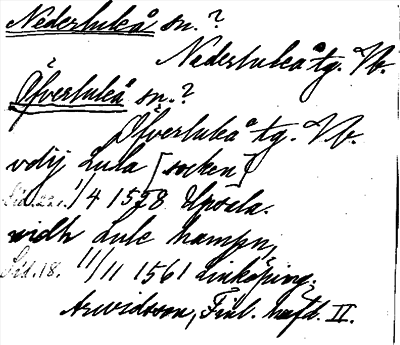 Nederluleå sn.?
Nederluleå tg. Nb.
Öfverluleå sn.?
Öfverluleå tg. Nb.
vdij Lula [socken]
Sid. 22. 1/4 1528 Upsala.
widh Lule hampn,
Sid. 18. 11/11 1561 Linköping.
Arwidsson, Finl. häfd. II.